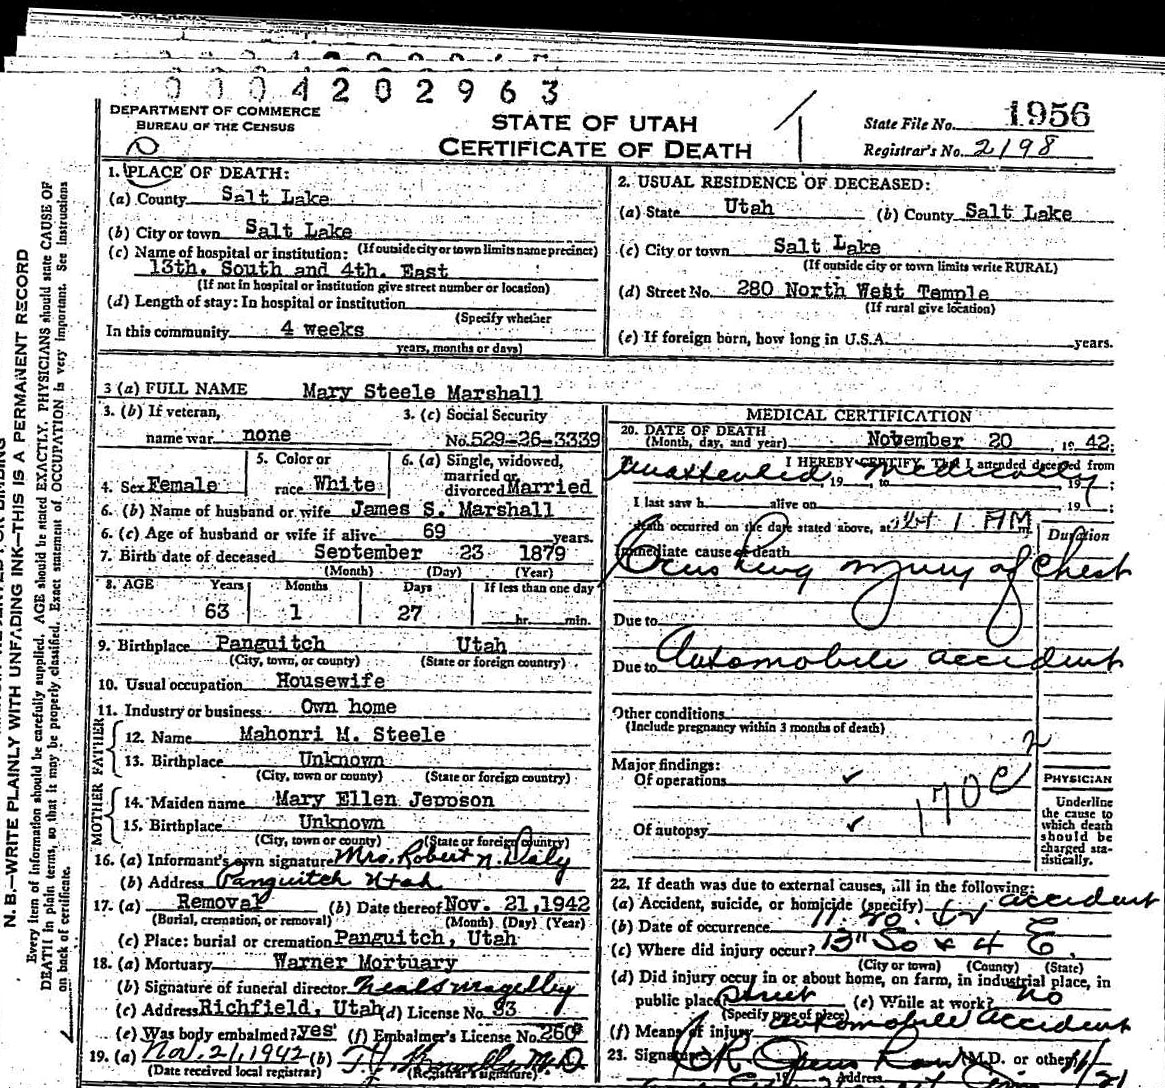 0 0 0 4 2 0 2 9 6 3
DEPARTMENT OF COMMERCE
BUREAU OF THE CENSUS
STATE OF UTAH
CERTIFICATE OF DEATH
State File No. 1956
Registrar's No. 2198
1. PLACE OF DEATH:
(a) County Salt Lake
(b) City or town Salt Lake
(If outside city or town limits name precinct)
(c) Name of hospital or institution:
13th. South and 4th. East
(If not in hospital or institution give street number or location)
(d) Length of stay: In hospital or institution
(Specify whether
In this community 4 weeks
years, months or days)
2. USUAL RESIDENCE OF DECEASED:
(a) State Utah (b) County Salt Lake
(c) City or town Salt Lake
(If outside city or town limits write RURAL)
(d) Street No. 280 North West Temple
(If rural give location)
(e) If foreign born, how long in U.S.A. years.
3 (a) FULL NAME Mary Steele Marshall
3. (b) If veteran, 3. (c) Social Security
name war none No. 529-26-3339
4. Sex Female
5. Color or
race White
6. (a) Single, widowed,
married or
divorced Married
6. (b) Name of husband or wife James S. Marshall
6. (c) Age of husband or wife if alive 69 years.
7. Birth date of deceased September 23 1879
(Month) (Day) (Year)
8. AGE Years Months Days If less than one day
63 1 27 hr. min.
9. Birthplace Panguitch Utah
(City, town, or county) (State or foreign country)
10. Usual occupation Housewife
11. Industry or business Own home
FATHER
12. Name Mahonri M. Steele
13. Birthplace Unknown
(City, town or county) (State or foreign country)
MOTHER
14. Maiden name Mary Ellen Jeppson
15. Birthplace Unknown
(City, town or county) (State or foreign country)
16. (a) Informant's own signature Mrs. Robert N. Daly
(b) Address Panguitch Utah
17. (a) Removal (b) Date thereof Nov. 21, 1942
(Burial, cremation, or removal) (Month) (Day) (Year)
(c) Place: burial or cremation Panguitch, Utah
18. (a) Mortuary Warner Mortuary
(b) Signature of funeral director Neal S Magelby
(c) Address Richfield, Utah (d) License No. 93
(e) Was body embalmed? yes (f) Embalmer's License No. 260
19. (a) Nov. 21, 1942 (b) M.D.
(Date received local registrar) (Registrar's signature)
MEDICAL CERTIFICATION
20. DATE OF DEATH
(Month, day, and year) November 20, 1942;
I HEREBY CERTIFY, That I attended deceased from
Unattended, 19 , to Medically, 19 ;
I last saw h alive on , 19 ;
death occurred on the date stated above, at 1 AM
Duration
Immediate cause of death
Crushing injury of Chest
Due to
Due to Automobile accident
Other conditions
(Include pregnancy within 3 months of death)
Major findings:
Of operations ✓
170c
2
Of autopsy ✓
PHYSICIAN
Underline
the cause to
which death
should be
charged sta-
tistically.
22. If death was due to external causes, fill in the following:
(a) Accident, suicide, or homicide (specify) accident
(b) Date of occurrence 11. 20. 42
(c) Where did injury occur? 13th So & 4 E.
(City or town) (County) (State)
(d) Did injury occur in or about home, on farm, in industrial place, in
public place? Street (e) While at work? no
(Specify type of place)
(f) Means of injury automobile accident
23. Signature (M.D. or other)
Address
N. B.—WRITE PLAINLY WITH UNFADING INK—THIS IS A PERMANENT RECORD
Every item of information should be carefully supplied. AGE should be stated EXACTLY. PHYSICIANS should state CAUSE OF
DEATH in plain terms, so that it may be properly classified. Exact statement of OCCUPATION is very important. See instructions
on back of certificate.